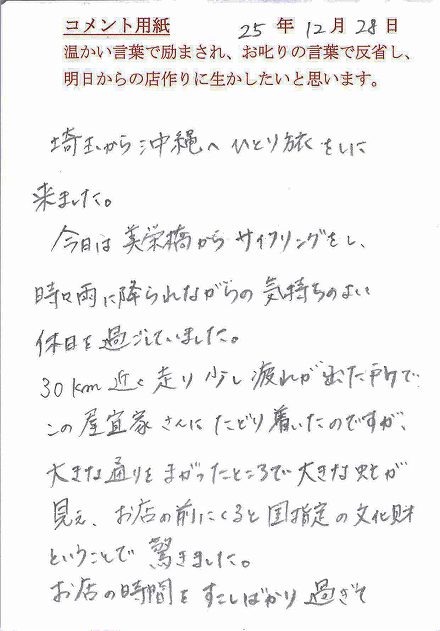 コメント用紙 25年12月28日
温かい言葉で励まされ、お叱りの言葉で反省し、
明日からの店作りに生かしたいと思います。
埼玉から沖縄へひとり旅をしに
来ました。
今日は美栄橋からサイクリングをし、
時々雨に降られながらの気持ちのよい
休日を過ごしていました。
30km近く走り少し疲れが出た所で
この屋宜家さんにたどり着いたのですが、
大きな通りをまがったところで大きな が
見え、お店の前にくると国指定の文化財
ということで驚きました。
お店の時間をすこしばかり過ぎて